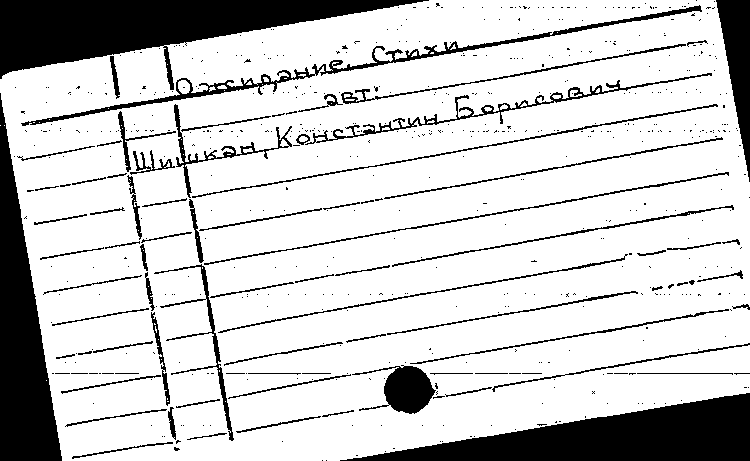 Ожидание. Стихи.
авт:
Шишкан, Константин Борисович